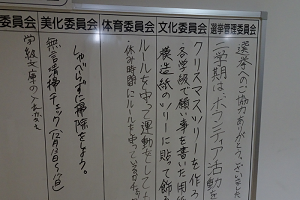 選挙管理委員会
選挙へのご協力ありがとうございました
二学期は、ボランティア活動を
文化委員会
クリスマスツリーを作ろう
各学級で願い事を書いた用紙
模造紙のツリーに貼って飾る
体育委員会
ルールを守って運動をしてし
休み時間にルールを守っているか
美化委員会
しゃべらずに掃除をしよう。
無言清掃チェック(12月13日~17日)
委員会
学級文庫の入れかえ